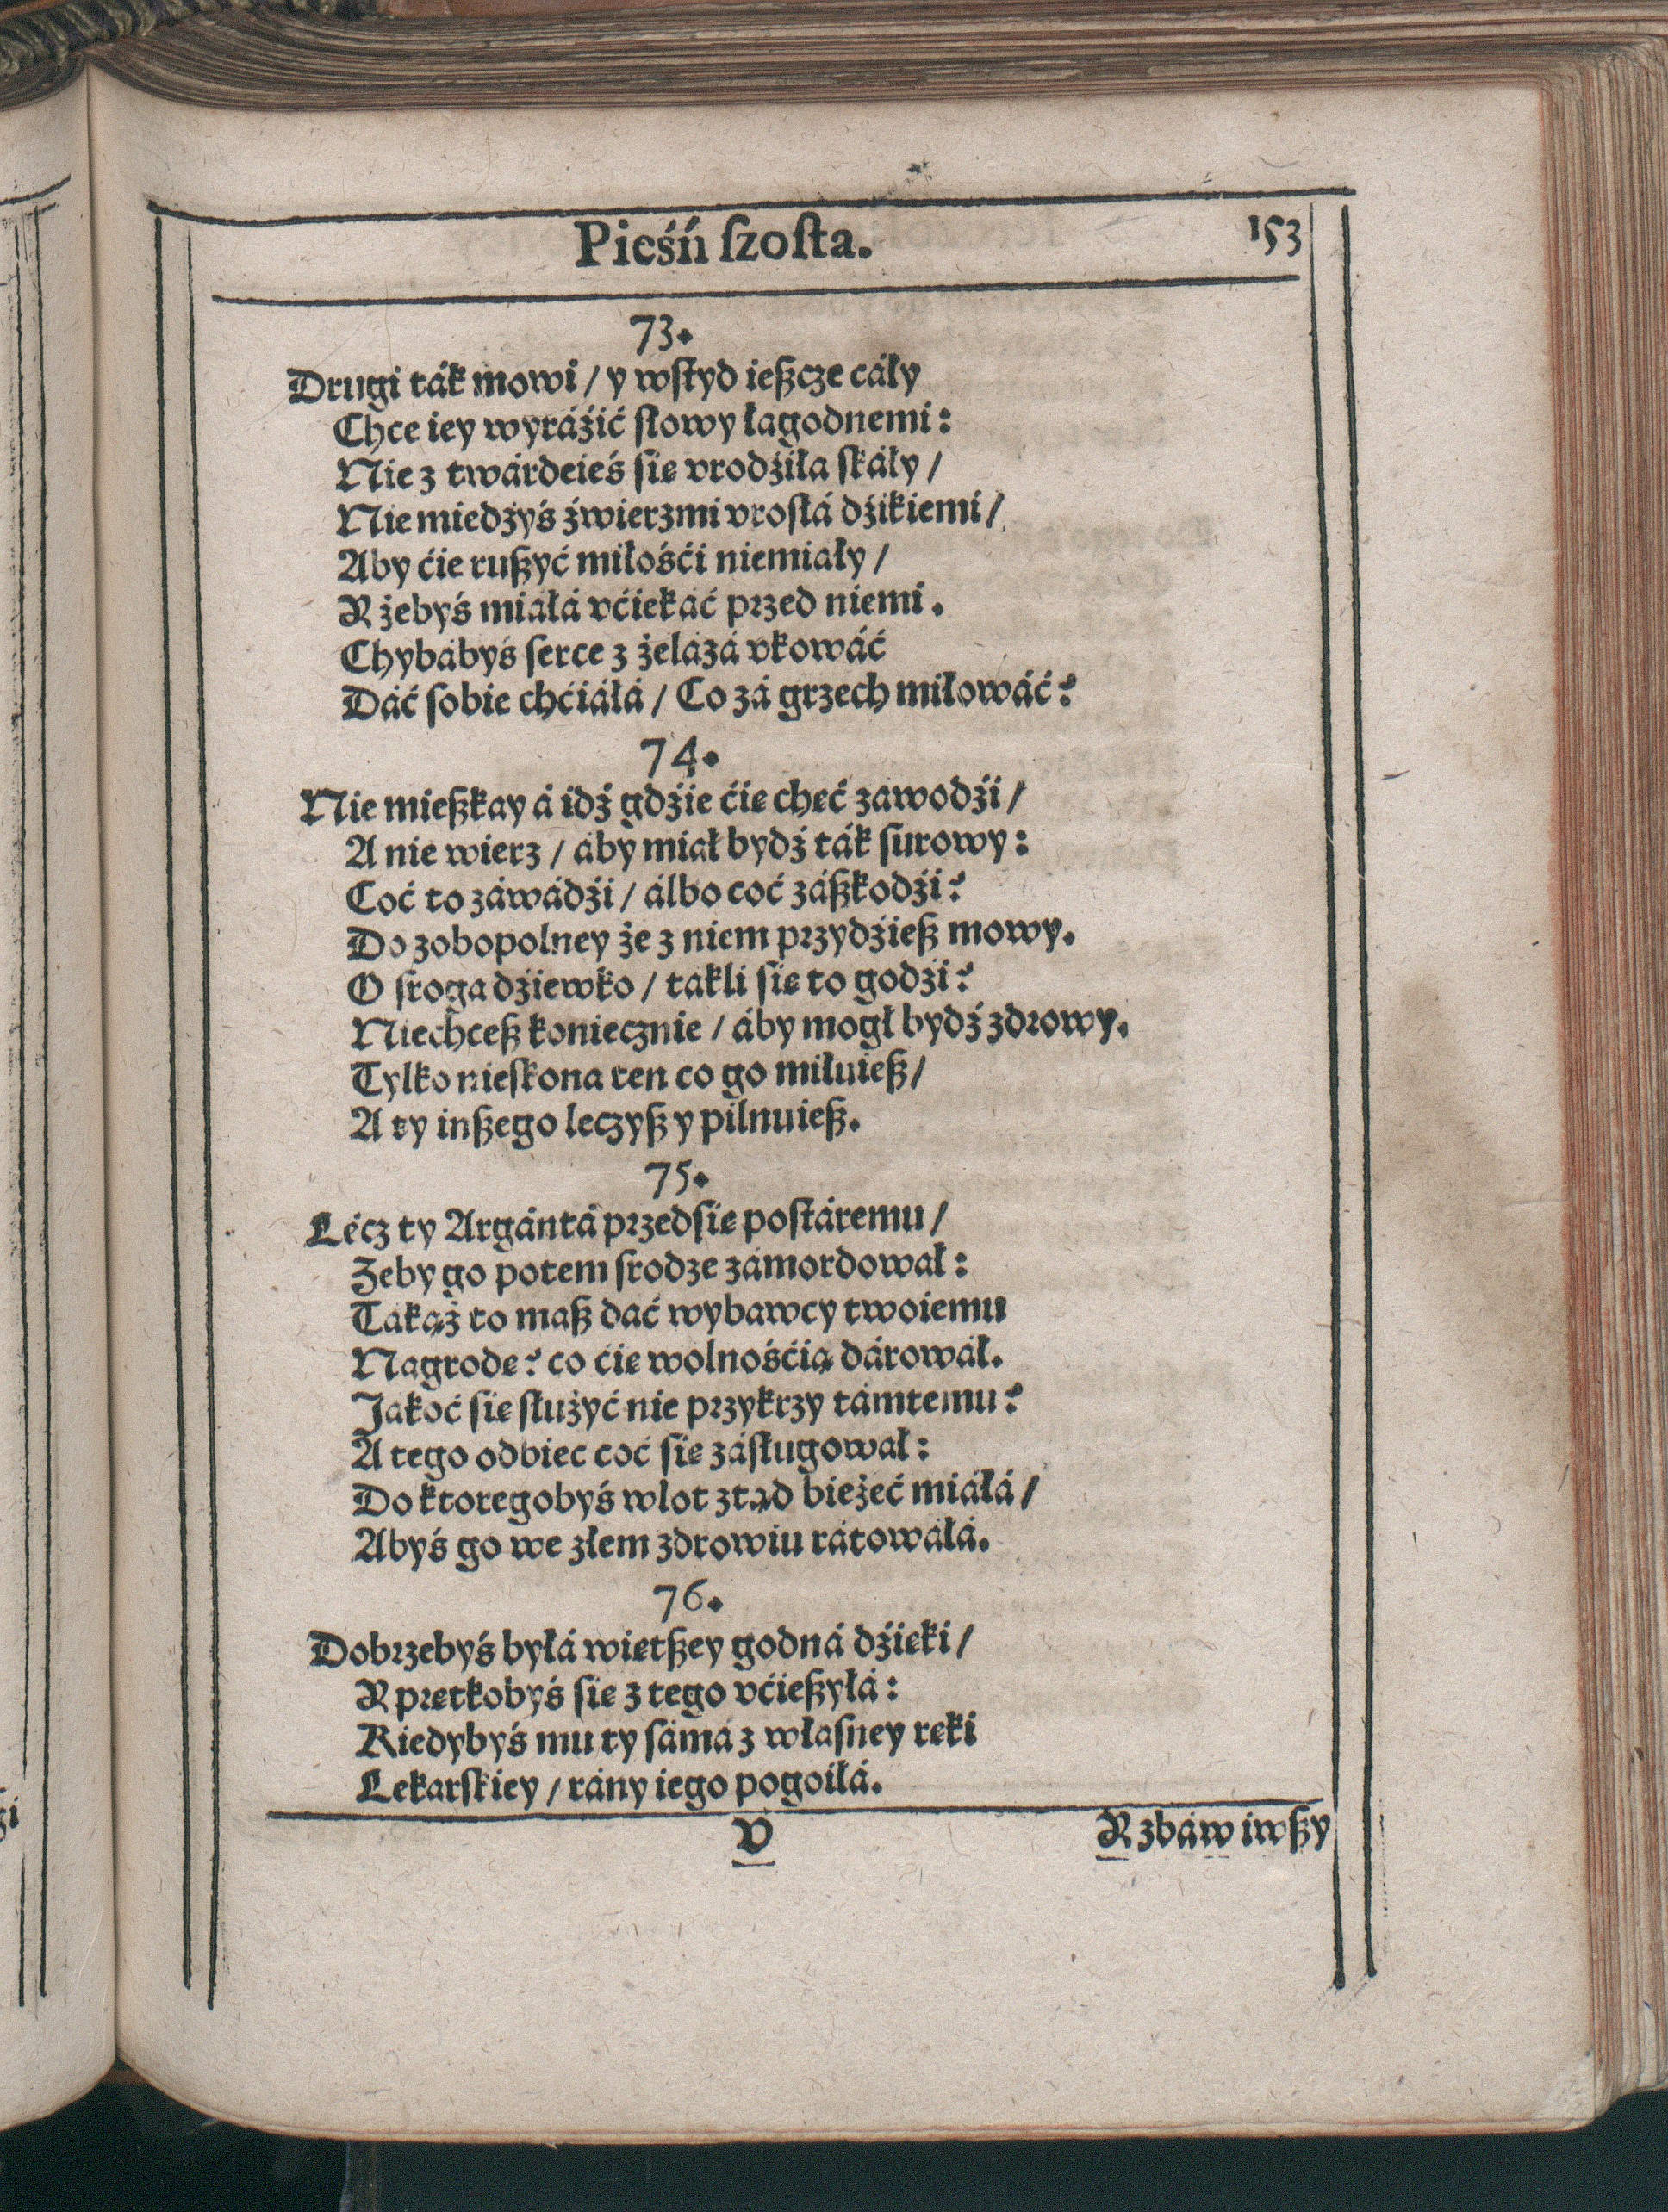 Pieśń ſzoſta.
153
73.
Drugi ták mowi / y wſtyd ießcze cáły
Chce iey wyráźić ſłowy łagodnemi:
Nie z twárdeieś ſię vrodźiłá ſkáły /
Nie miedzyś źwierzmi vroſłá dźikiemi /
Aby ćię rußyć miłośći niemiały /
Y żebyś miáłá vćiekáć przed niemi.
Chybábyś ſerce z żelázá vkowáć
Dáć ſobie chćiáłá / Co zá grzech miłowáć?
74.
Nie mießkay á idź gdźie ćię chęć zawodźi /
A nie wierz / áby miał bydź ták ſurowy:
Coć to záwádźi / álbo coć záßkodźi?
Do zobopolney że z niem przydźieß mowy.
O ſroga dźiewko / takli ſię to godźi?
Niechceß koniecznie / áby mogł bydź zdrowy.
Tylko nieſkona ten co go miłuieß /
A ty inßego leczyß y pilnuieß.
75.
Lécz ty Argántá przedſię poſtáremu /
Zeby go potem ſrodze zámordował:
Takąż to maß dać wybawcy twoiemu
Nagrodę? co ćię wolnośćią dárował.
Jakoć ſię służyć nie przykrzy támtemu?
A tego odbiec coć ſię záſługował:
Do ktoregobyś wlot ztąd bieżeć miáłá /
Abyś go we złem zdrowiu rátowáłá.
76.
Dobrzebyś byłá więtßey godná dźięki /
Y prętkobyś ſię z tego vćießyłá:
Kiedybyś mu ty ſámá z właſney ręki
Lekarſkiey / rány iego pogoiłá.
V
Y zbáwiwßy